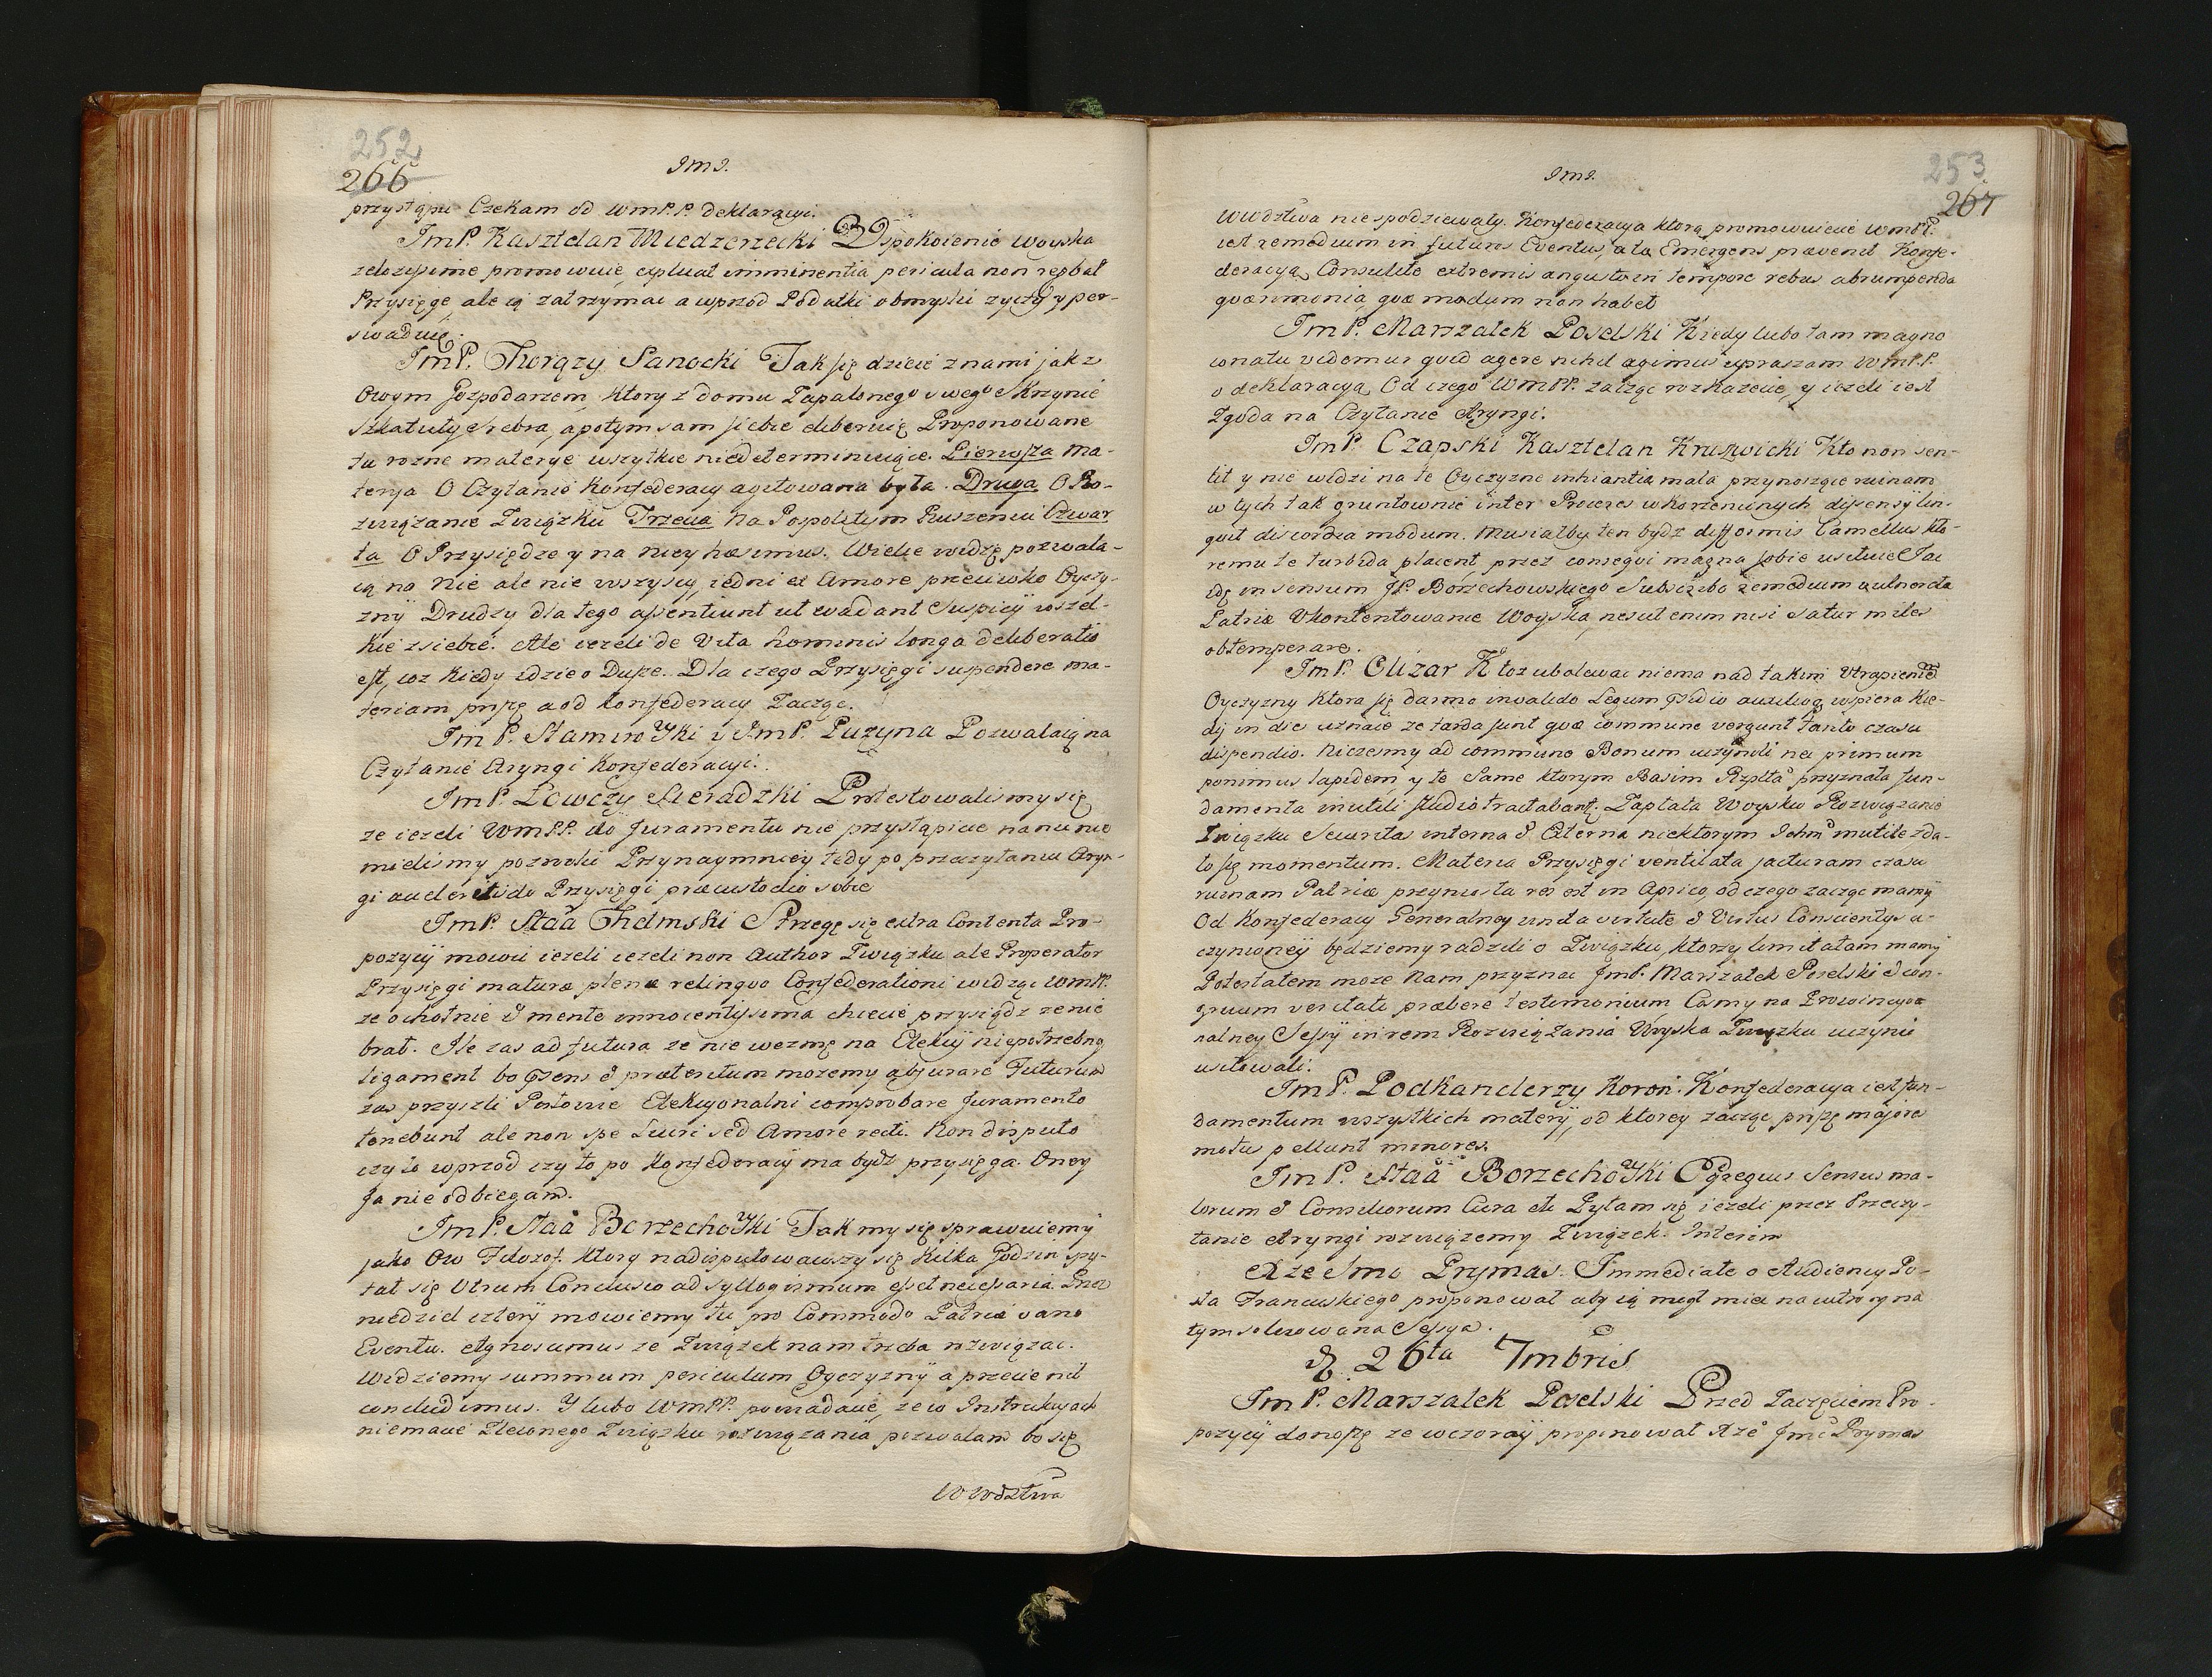 252
266
Jmś.
przystąpi. Czekam od WmP.P. deklaracyi.
JmP. Kasztelan Miedzerzecki Uspokoienie woyska
zelozissime promowuie, expluat imminentia pericula non regbat
Przysięgę, ale ią zatrzymac a wprzod Podatki obmysli zyczy y per-
swaduie.
JmP. Chorąży Sanocki Tak się dzieie z nami jak z
Owym Gospodarzem, ktory z domu Zapalonego swego Skrzynie
Szkatuły srebra, a potym sam siebie liberuie Proponowane
tu rozne materye wszytkie niedeterminuiąc. Pierwsza ma-
terya O Czytanie Konfederacy agitowana była. Druga O Ro-
związanie Związku Trzecia Na Pospolitym Ruszeniu Czwar
ta O Przysiędze y na niey hæsimus. Wiele widzę pozwala-
ią na nie ale nie wszyscy, iedni ex Amore przeciwko Oyczy-
zny Drudzy dla tego assentiunt ut evadant Suspicy wszel-
kie z siebie. Ale iezeli de Vita hominis longa deliberatio
est, coz kiedy idzie o Dusze. Dla czego Przysięgi suspendere ma-
teriam proszę a od Konfederacy Zacząc.
JmP. Staniwoyski y JmP. Puzyna Pozwalaią na
Czytanie Aryngi Konfederacyi.
JmP. Łowczy Sieradzki Protestowalismy się
ze iezeli WmP.P. do Juramentu nie przystąpicie na nic nie
mielismy pozwolic Przynaymniey tedy po przeczytaniu Aryn-
gi audere do Przysięgi præcustodio sobie
JmP. Staa Chełmski Strzegę się extra Contenta Pro-
pozycij mowic iezeli iezeli non Author Związku ale Properator
Przysięgi maturæ plenæ relinquo Confederationi widząc WmP.
ze ochotnie & mente innocentissima chcecie przysiądz ze nie
brał. Ile zas ad futura ze nie wezmę na Elekcij niepotrzebny
ligament bo præsens & præteritum mozemy abjurare Futurum
zas przyszli Posłowie Elekcyonalni comprobare juramento
tenebunt ale non spe Lucri sed Amore recti. Non disputo
czy to wprzod czy to po Konfederacij ma bydz przysięga. Oney
Ja nie odbiegam.
JmP. Staa Borzechoyski Tak my się sprawuiemy
jako Ow Filozof. ktory nadisputowawszy się kilka Godzin spy-
tał się Utrum Conclusio ad syllogismum esset necessaria. Przez
niedziel cztery mowiemy tu pro Commodo Patriæ vano
Eventu. Agnoscimus ze Związek nam trzeba rozwiązac.
Widziemy summum periculum Oyczyzny a przecie nil
concludimus. Y lubo WmPP. powiadacie, ze w Instrukcyach
niemacie Zleconego Związku rozwiązania pozwalam bo się
WWdztwa
253
267
Jmś.
WWdztwa niespodziewały. Konfederacya ktorą promowuiecie WmPP.
iest remedium in futuros Eventus, a ta Emergens prævenit Konfe-
deracyą. Consulite extremis angusto in tempore rebus abrumpenda
quærimonia quæ modum non habet
JmP. Marszałek Poselski Kiedy lubo tam magno
conatu videmur quid agere nihil agimus upraszam WmP.P.
o deklaracyą, Od czego WmPP. zacząc rozkazecie, y iezeli iest
Zgoda na Czytanie Aryngi.
JmP. Czapski Kasztelan Kruszwicki Kto non sen-
tit y nie widzi na te Oyczyznę inhiantia mala przynoszące ruinam
w tych tak gruntownie inter Proceres wkorzenionych dissensy lin-
quit discordia modum. Musiałby ten bydz difformis Camellus kto-
remu te turbida placent przez consequi magna sobie usituie Ja
idę in sensum JP. Borzechowskiego Subscribo remedium vulnerata
Patriæ Ukontentowanie Woyska, nescit enim nisi satur miles
obtemperare.
JmP. Olizar Ktoz ubolewac niema nad takim Utrapieniem
Oyczyzny ktora się darmo invalido Legum præsidio auxilioq. wspiera kie-
dy in dies uznaie ze tarda sunt quæ commune vergunt tanto czasu
dispendio. Niczesmy ad commune Bonum uczynili ne primum
ponimus lapidem y te same ktorym Basim Rzplta przyznała fun-
damenta inutili studio tractabant. Zapłata Woysku Rozwiązanie
Związku Securitas interna & Externa niektorym Ichmć mutile zda-
ło się momentum. Materia Przysięgi ventilata jacturam czasu
ruinam Patriæ przyniosła res est in Aprico, od czego zacząc mamy
Od Konfederacy Generalney unda virtute & Virtus Conscientys u-
czynioney będziemy radzili o Związku, ktorzy limitatam mamy
Potestatem moze nam przyznac JmP. Marszałek Poselski & con-
gruum veritati præbere testimonium Cosmy na Prowincyo-
nalney Sessyi in rem Rozwiązania Woyska Związku uczynic
usiłowali.
JmP. Podkanclerzy Koroň. Konfederacya iest fun-
damentum wszystkich matery, od ktorey zacząc proszę majore
motus pellunt minores.
JmP. Staa Borzechoyski Egregius Sensus ma-
lorum & Consiliorum Cura etc Pytam się iezeli przez Przeczy-
tanie Aryngi rozwiązemy Związek. Interim
Xze Jmc Prymas. Immediate o Audiencij Po-
sła Francuskiego proponował aby ią mogł miec na iutro y na
tym solwowana Sessya.
D. 26ta 7mbris
JmP. Marszałek Poselski Przed Zaczęciem Pro-
pozycij donoszę ze wczoray proponował Xze Jmć Prymas